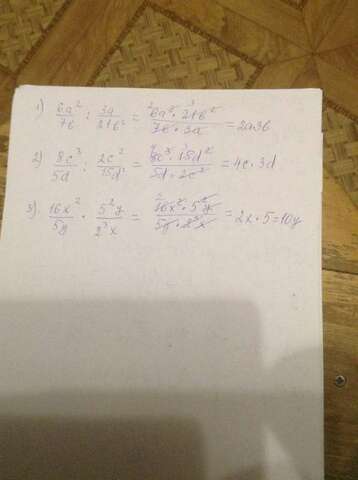 1) 6a²/7b : 3a/21b² = 6a²·21b²/7b·3a = 2a3b
2) 8c³/5d : 2c²/15d² = 8c³·15d²/5d·2c² = 4c·3d
3) 16x²/5y · 5²y/2³x = 16x²·5²y/5y·2³x = 2x·5=10y